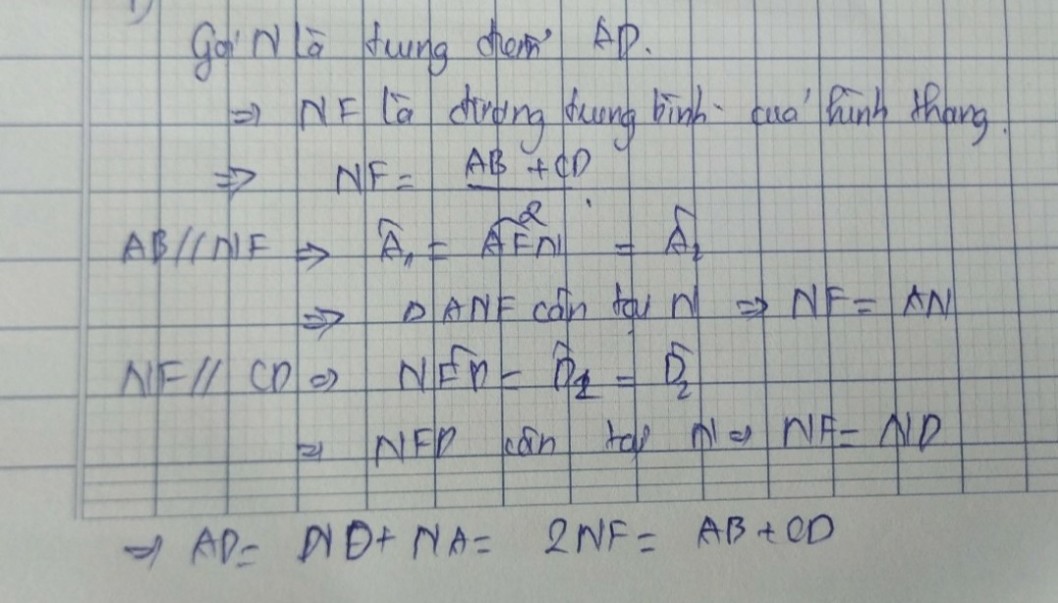 1)
Gọi N là trung điểm AD.
⇒ NF là đường trung bình của hình thang.
⇒ NF = (AB + CD)/2.
AB // NF ⇒ Â₁ = AFN̂ = Â₂
⇒ Δ ANF cân tại N ⇒ NF = AN
NF // CD ⇒ NFD̂ = D̂₁ = D̂₂
⇒ NFD cân tại N ⇒ NF = ND
⇒ AD = ND + NA = 2NF = AB + CD